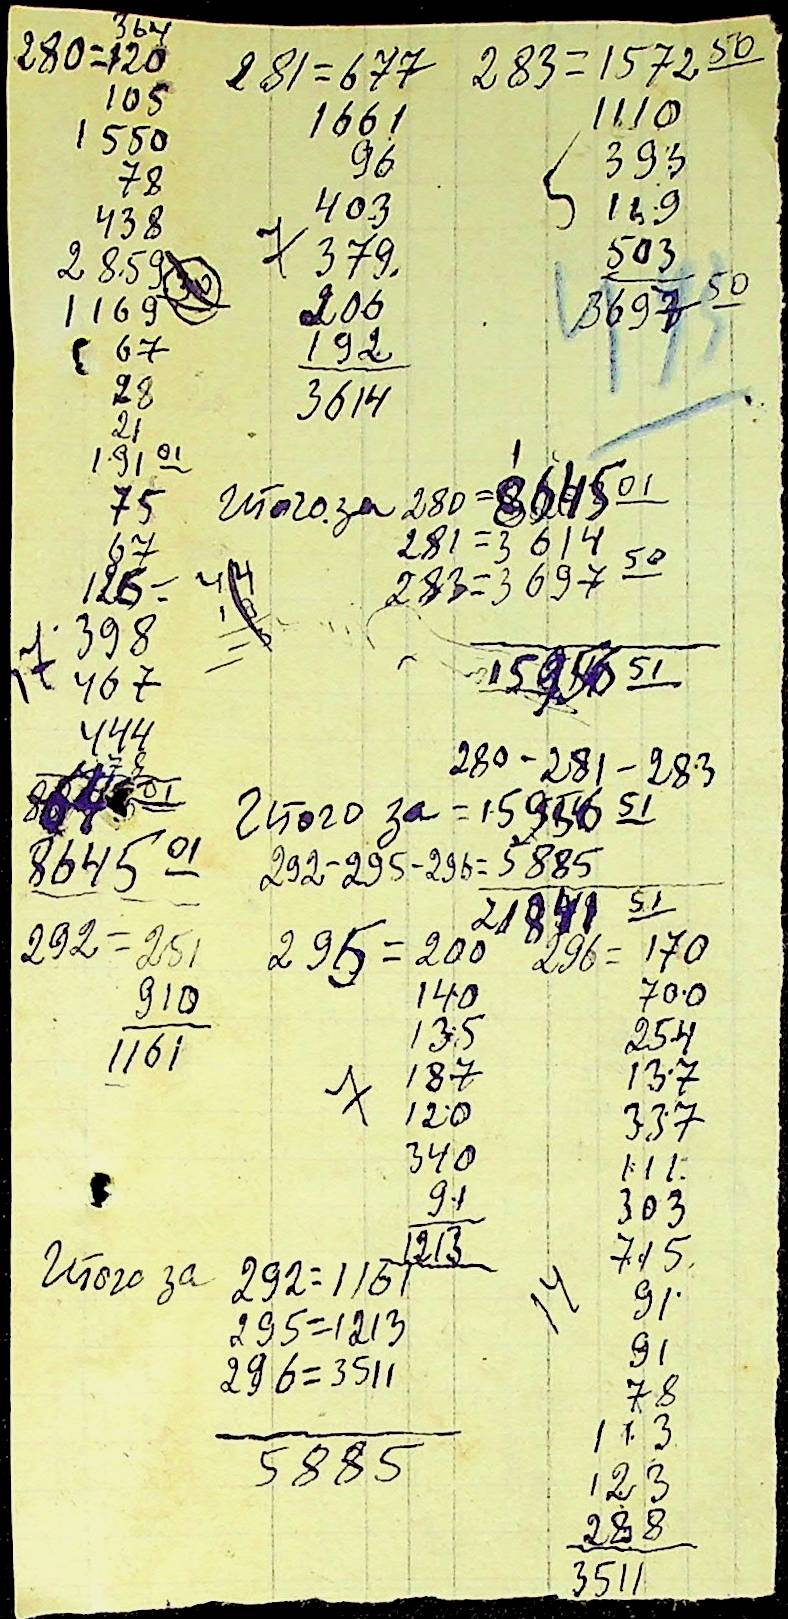 364
280=120
105
1550
78
438
2859
1169
67
28
21
191 01
75
67
126=
7 398
17 467
444
78
8645 01
281=677
1661
96
403
7 379
206
192
3614
283=1572 50
1110
393
5 119
503
3697 50
Итого за 280=8645 01
281=3614
283=3697 50
15956 51
280-281-283
Итого за =15956 51
292-295-296=5885
21841 51
292=251
910
1161
295=200
140
135
187
7 120
340
91
1213
296=170
700
254
137
337
111
303
715
14 91
91
78
113
123
288
3511
Итого за 292=1161
295=1213
296=3511
5885